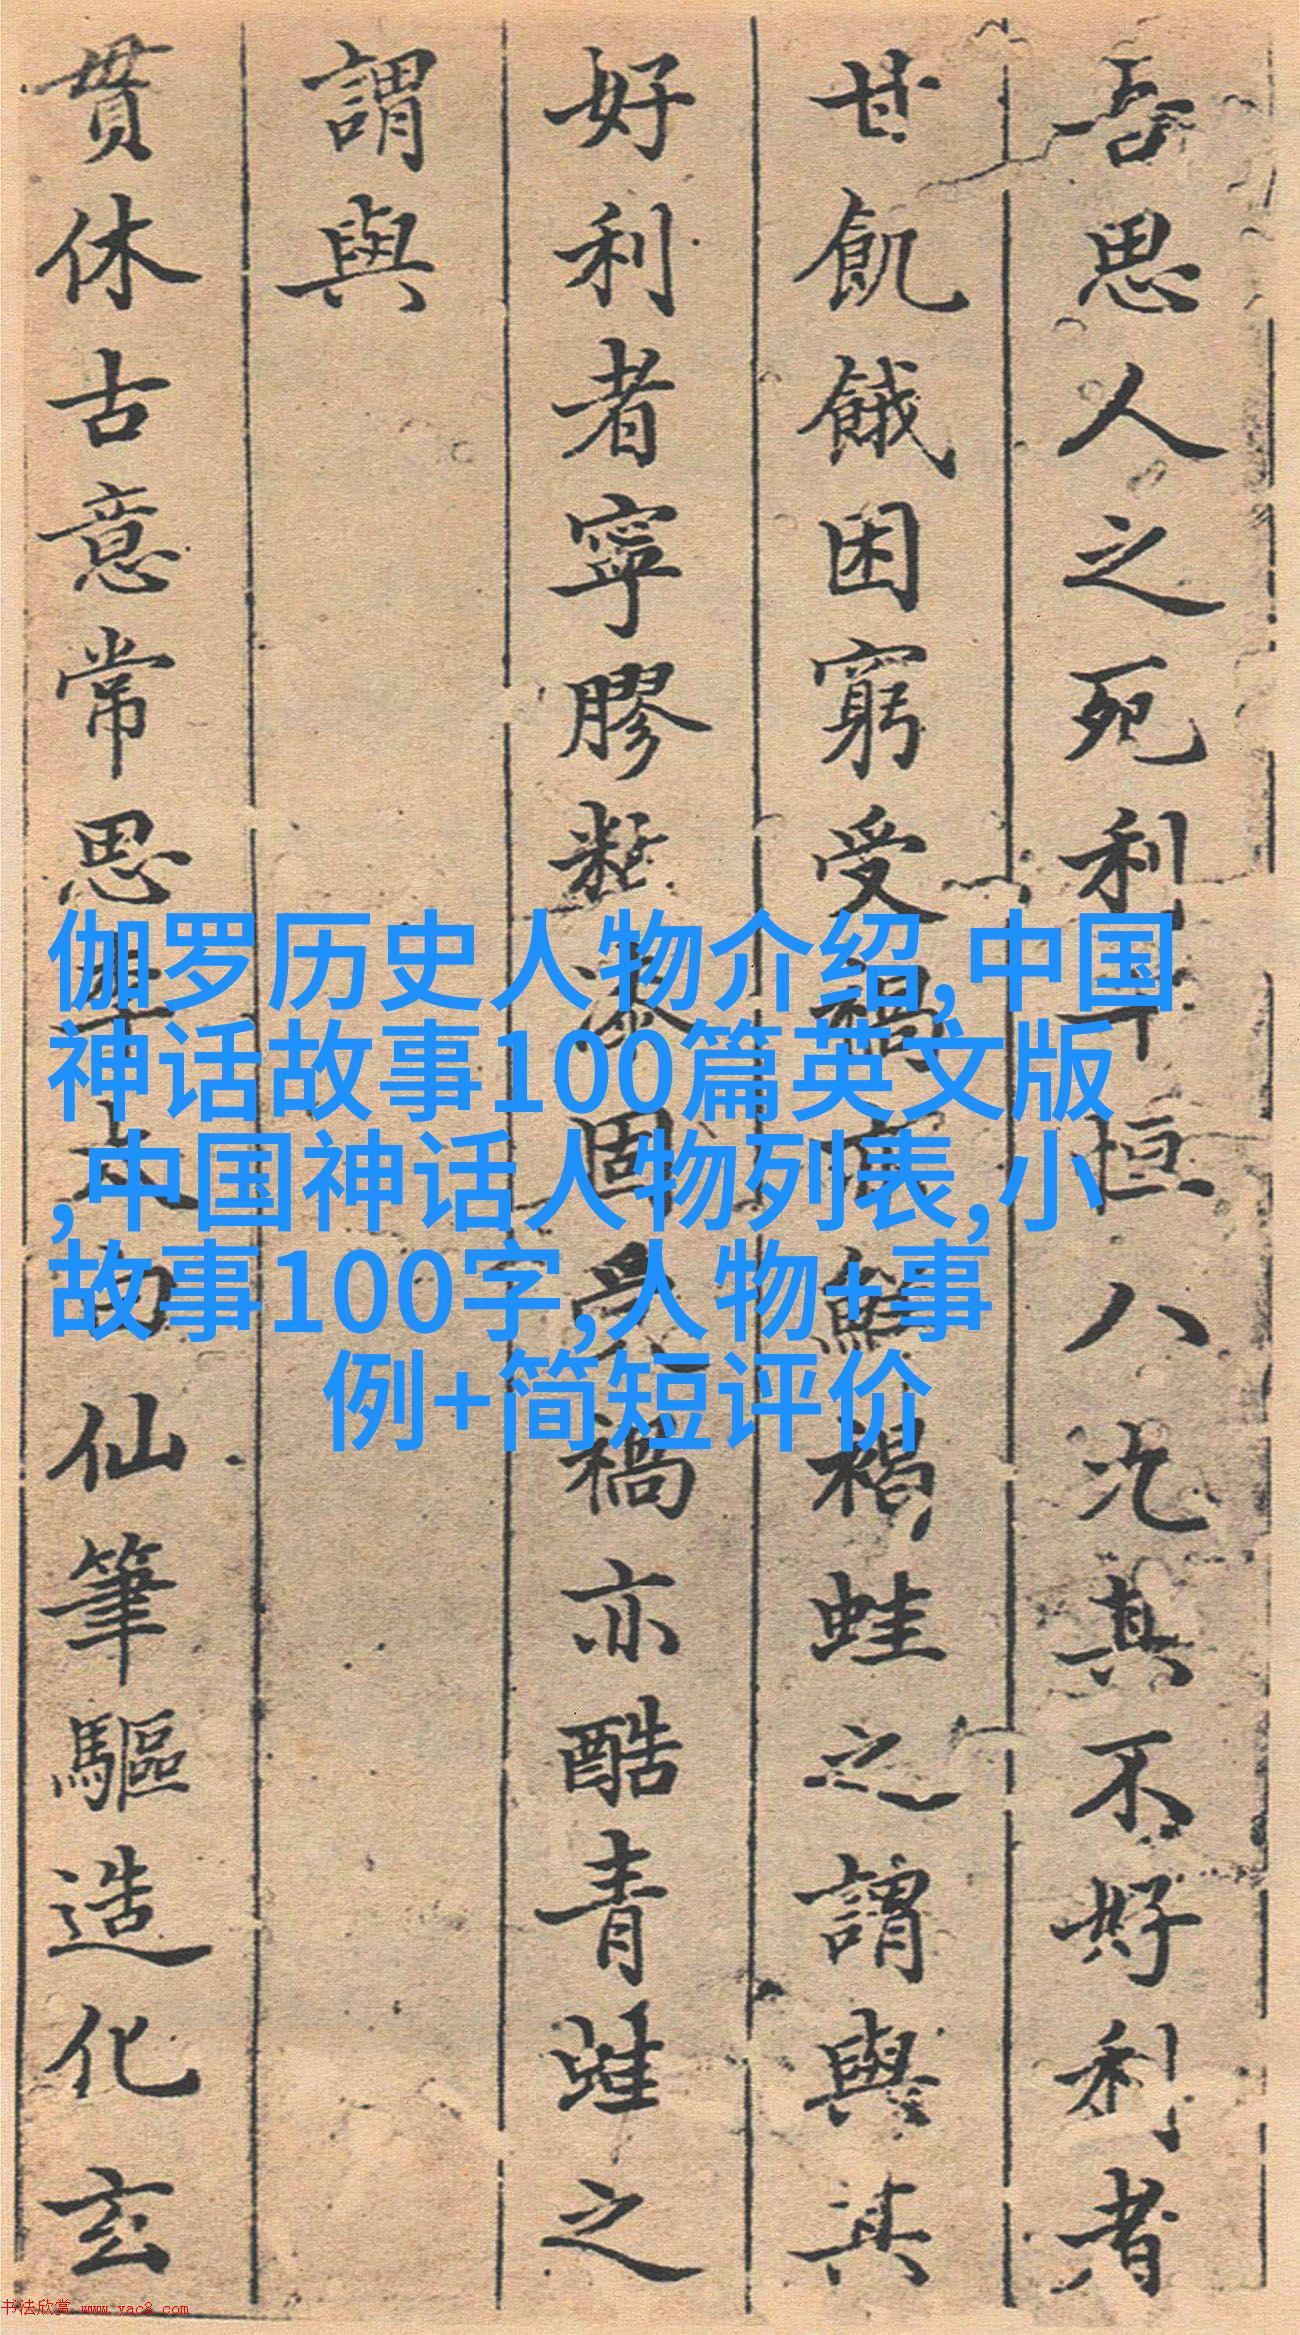 吾思人之死利十恒八九其不好利者
甘飢餓困窮受禍亦鮮褐蛙之謂與其
好利者寧膠黏漆固受禍亦酷青蛙之
謂與
貫休古意常思李太白仙筆驅造化玄
伽罗历史人物介绍,中国
神话故事100篇英文版
,中国神话人物列表,小
故事100字,人物+事
例+简短评价
书法欣赏 www.yac8.com